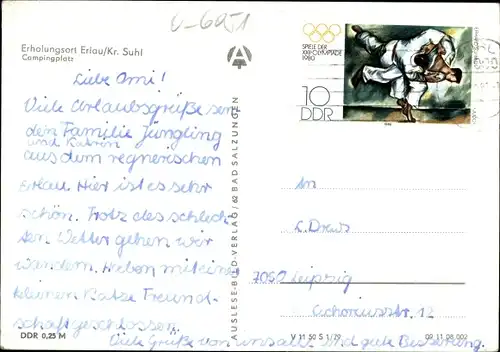 U-6051
Erholungsort Erlau/Kr. Suhl
Campingplatz
Liebe Omi!
Viele Urlaubsgrüße sen
den Familie Jüngling
und Katrin
aus dem regnerischen
Erlau. Hier ist es sehr
schön. Trotz des schlech
ten Wetter gehen wir
wandern. Haben mit einer
kleinen Katze Freund-
schaft geschlossen.
Viele Grüße von uns allen und gute Besserung.
DDR 0,25 M
AUSLESE-BILD-VERLAG/62 BAD SALZUNGEN
SPIELE DER
XXII. OLYMPIADE
1980
10
DDR
An
L. Drews
7050 Leipzig
Cichoriusstr. 12
V 11 50 S 1/79
09 11 08 002